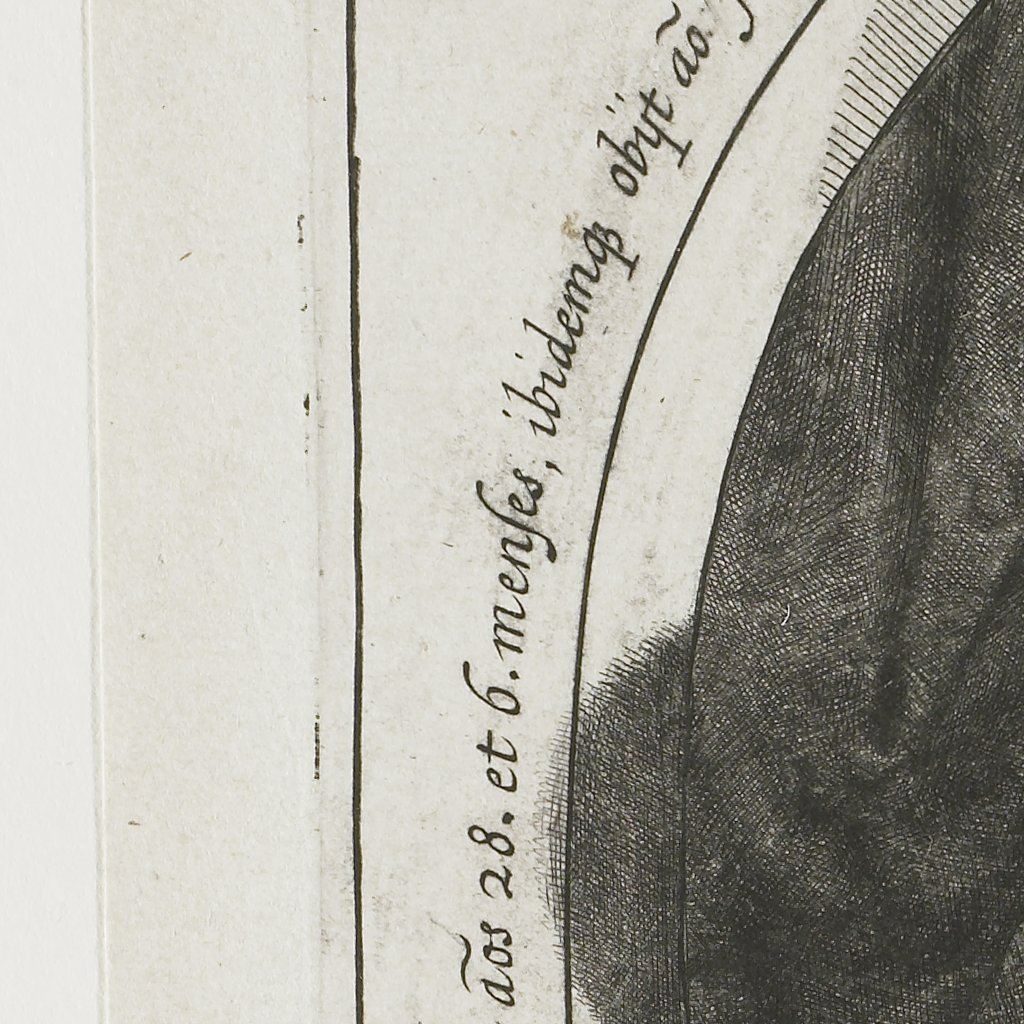 ãos 28. et 6. menſes, ibidemqꝫ obÿt ão.